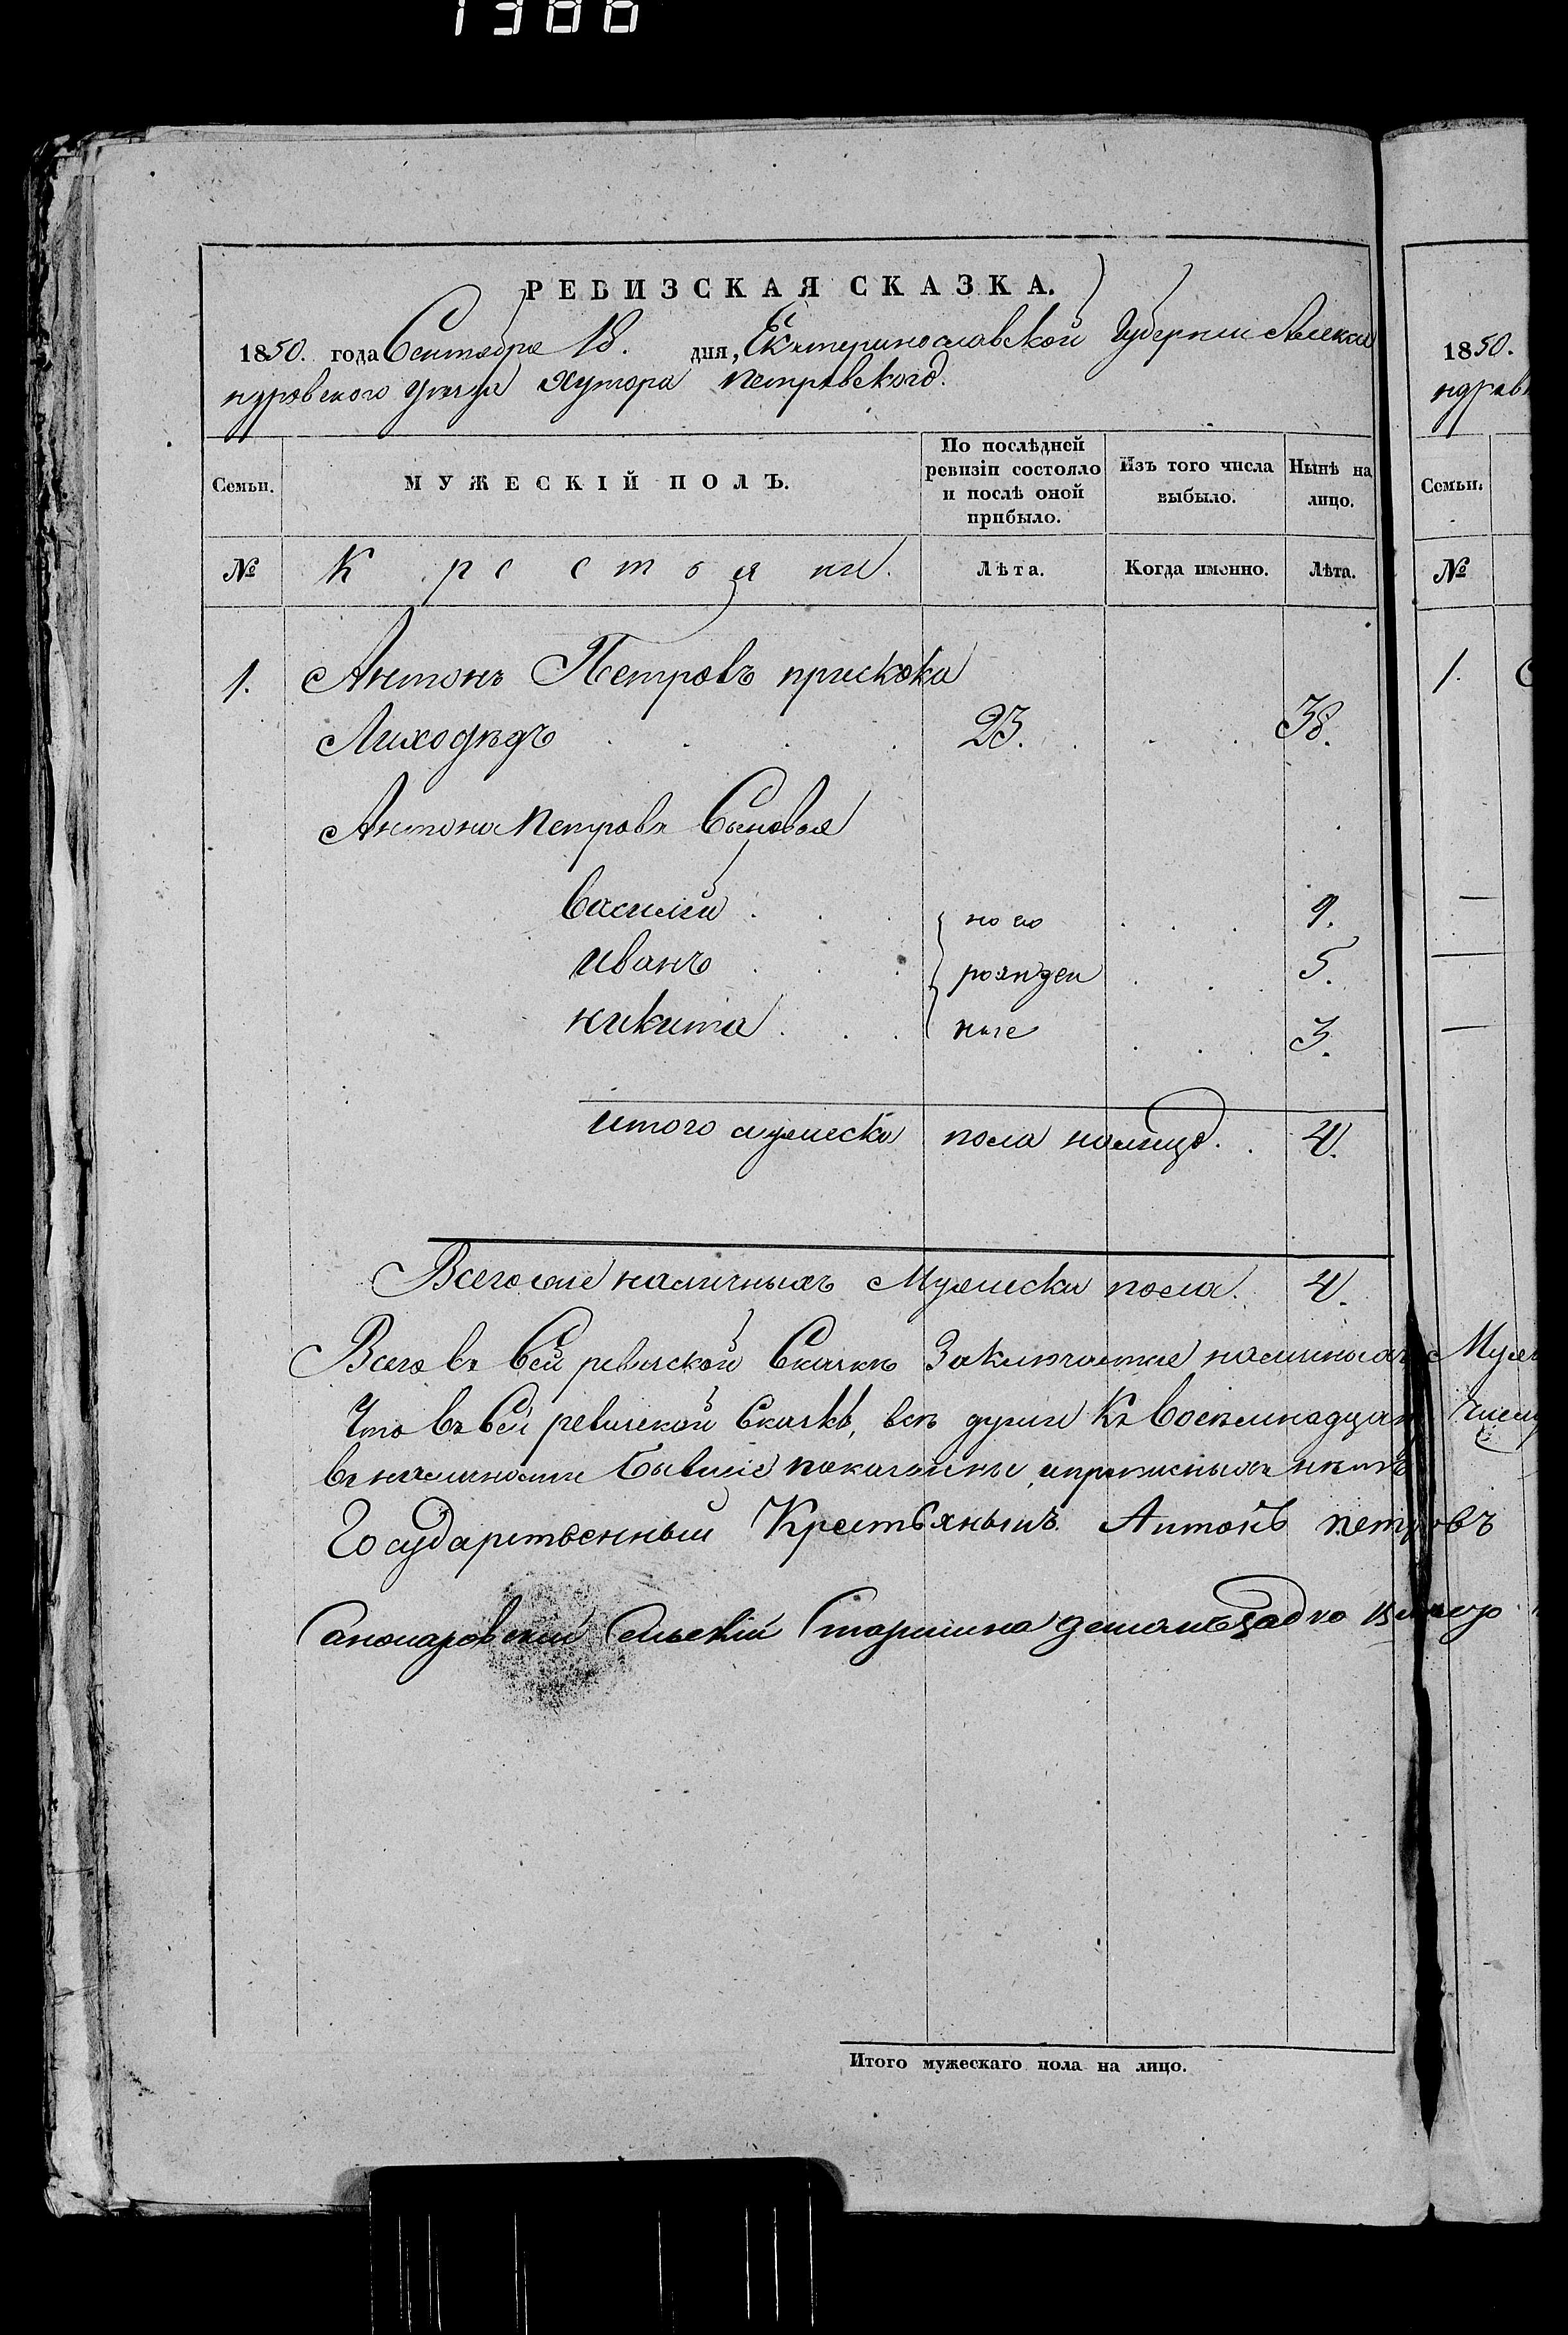 1386
РЕВИЗСКАЯ СКАЗКА.
1850. года Сентября 18. дня, Екатеринославской Губернии Алекса
ндровского уезда Хутора Петровского.
Семьи. МУЖЕСКІЙ ПОЛЪ. По послѣдней ревизіи состояло и послѣ оной прибыло. Изъ того числа выбыло. Нынѣ на лицо.
№ Крестьяни. Лѣта. Когда именно. Лѣта.
1. Антонъ Петровъ
Лиходѣдъ 23. 38.
Антона Петрова Сыновья
Василий ново 9.
Иванъ рожден 5.
Никита ные 3.
итого мужеска пола налицо. 4.
Всего наличныхъ Мужеска пола. 4.
Всего въ Сей ревизской Сказкѣ наличныхъ Муж
Что въ Сей ревизской Сказкѣ, всѣ души Къ Восемнадцат числу
въ наличности бывшие показаны
Государственный Крестьянынъ Антонъ петровъ
Сельскій Старшина
Итого мужескаго пола на лицо.
1850.
ндровс
Семьи.
№
1.